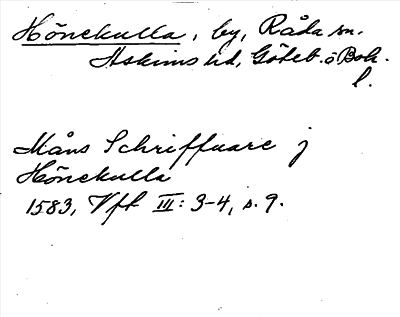 Hönekulla, by, Råda sn.
Askims hd, Göteb. o Boh.
l.
Måns Schriffuare j
Hönekulla
1583, Vfl III: 3-4, s. 9.